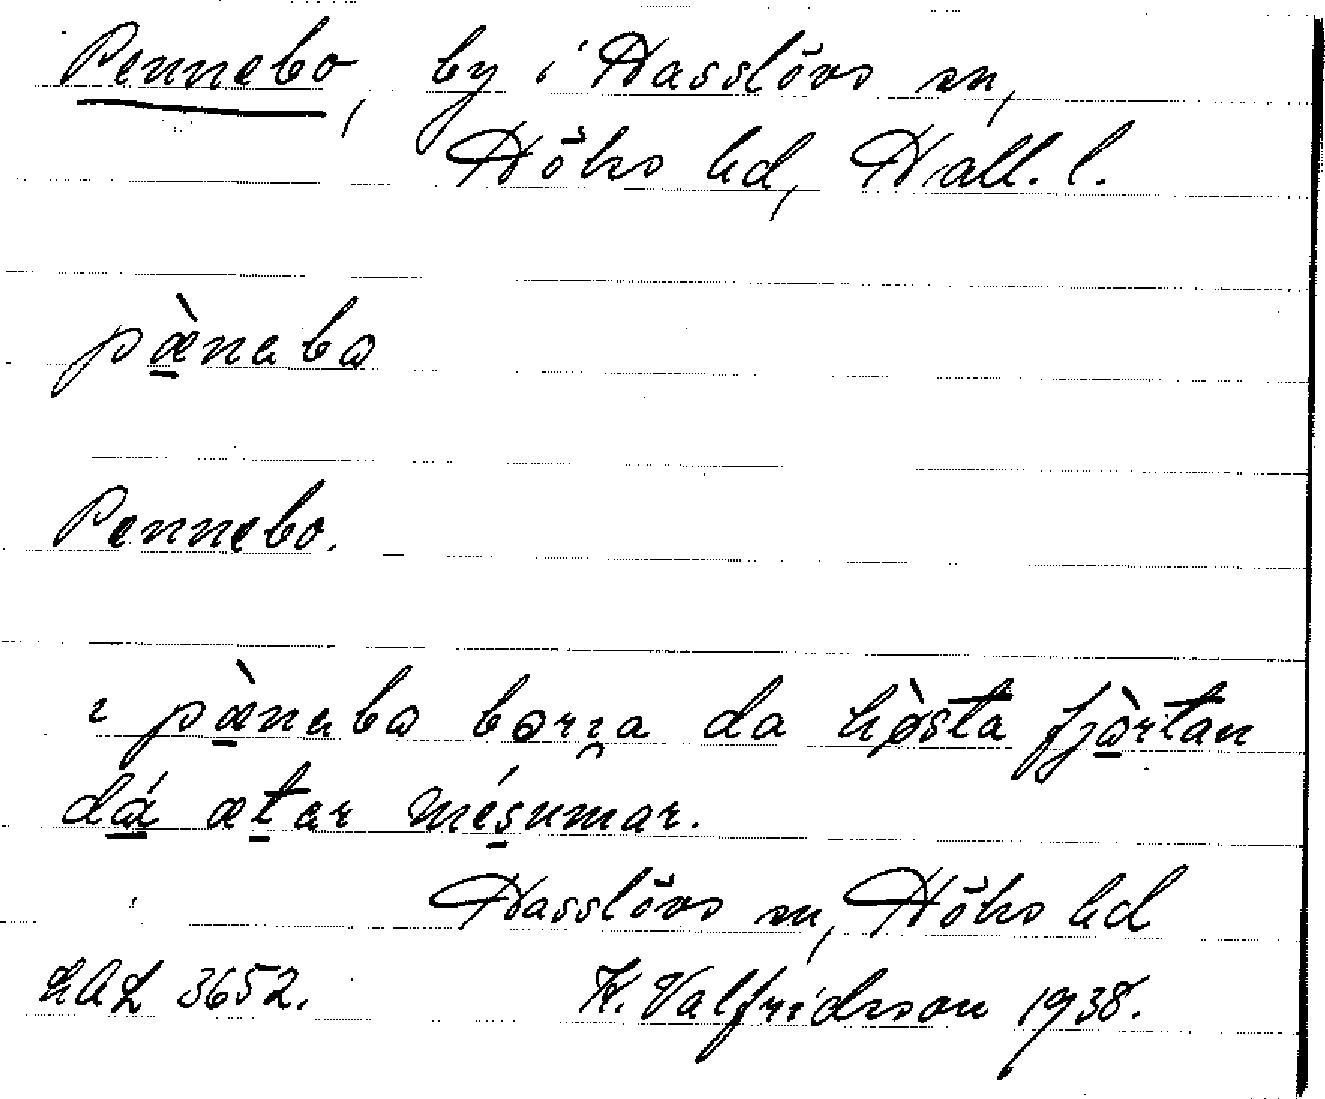 Pennebo, by i Hasslövs sn,
Höks hd, Hall. l.
pæ̀nabo
Pennebo.
ɩ pæ̀nabo børɲa da hø̀sta fjɔ̀rtan
dá ætar mésumar.
Hasslövs sn, Höks hd
LAL 3652. K. Valfridsson 1938.